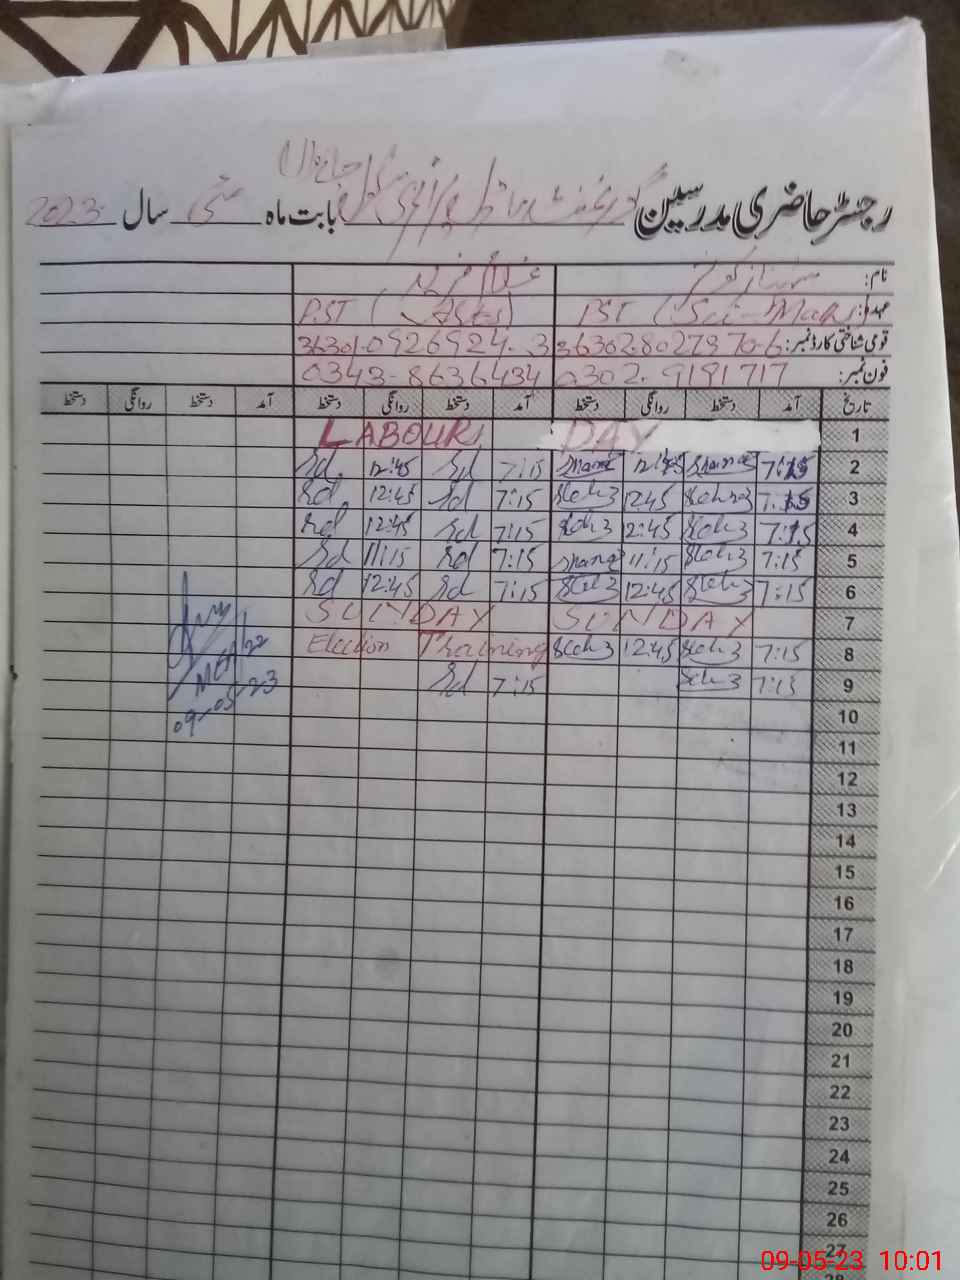 رجسٹر حاضری مدرسین گورنمنٹ ماڈل پرائمری سکول بابت ماہ مئی سال 2023
نام: شہناز کوثر غلام فرید
عہدہ: PST (Sci-Math) P.ST (Arts)
قومی شناختی کارڈ نمبر: 36302-8027970-6 36301-0926924-3
فون نمبر: 0302-9191717 0343-8636434
تاریخ آمد دستخط روانگی دستخط آمد دستخط روانگی دستخط آمد دستخط روانگی دستخط
1 LABOUR DAY
2 7:15 12:45 7:15 Sd 12:45 Sd
3 7:15 12:45 7:15 Sd 12:45 Sd
4 7:15 12:45 7:15 Sd 12:45 Sd
5 7:15 11:15 7:15 Sd 11:15 Sd
6 7:15 12:45 7:15 Sd 12:45 Sd
7 SUNDAY SUNDAY
8 7:15 12:45 Election Training
9 7:15 7:15 Sd
MEA/22
09-05-23
10
11
12
13
14
15
16
17
18
19
20
21
22
23
24
25
26
27
28
09-05-23 10:01